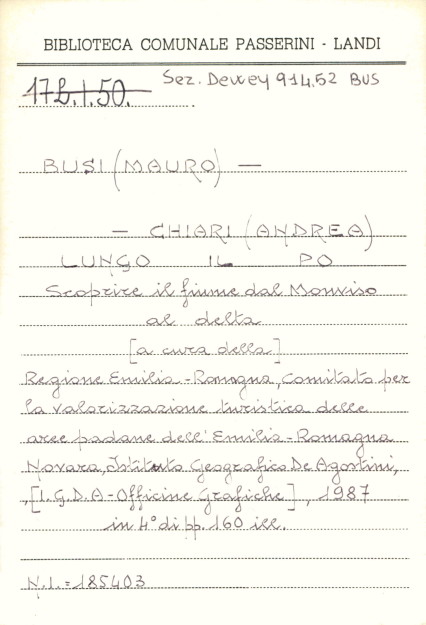 BIBLIOTECA COMUNALE PASSERINI - LANDI
Sez. Dewey 914.52 BUS
172.I.50.
BUSI (MAURO) —
— CHIARI (ANDREA)
LUNGO IL PO
Scoprire il fiume dal Monviso
al delta
[a cura della]
Regione Emilia-Romagna, Comitato per
la valorizzazione turistica delle
aree padane dell'Emilia-Romagna
Novara, Istituto Geografico De Agostini,
,[I.G.D.A-Officine Grafiche], 1987
in 4° di pp. 160 ill.
N.I.=185403